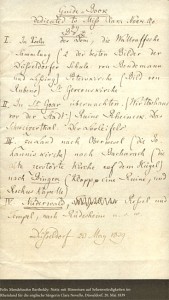 Guide-Book
Dedicated to Miss Clara Novello
I. In Cöln der Dom, die Wallraffsche
Sammlung (2 der besten Bilder der
Düsseldorfer Schule von Bendemann
und Lessing) Peterskirche (Bild von
Rubens) St. Gereonskirche
II. In St. Goar übernachten (Wirthshaus
vor der Stadt) Ruine Rheinfels
Schweizerthal
III. nach Oberwesel (die
kirche) nach Bacharach (die
zerstörte Kirche auf dem Hügel)
nach Bingen (Klopp eine Ruine, und
Rochus Kapelle
IV. Niederwald Rossel und
Tempel, nach Rüdesheim
Düsseldorf 20 May 1834
Felix Mendelssohn Bartholdy: Notiz mit Hinweisen auf Sehenswürdigkeiten im
Rheinland für die englische Sängerin Clara Novello. Düsseldorf, 20. Mai 1834